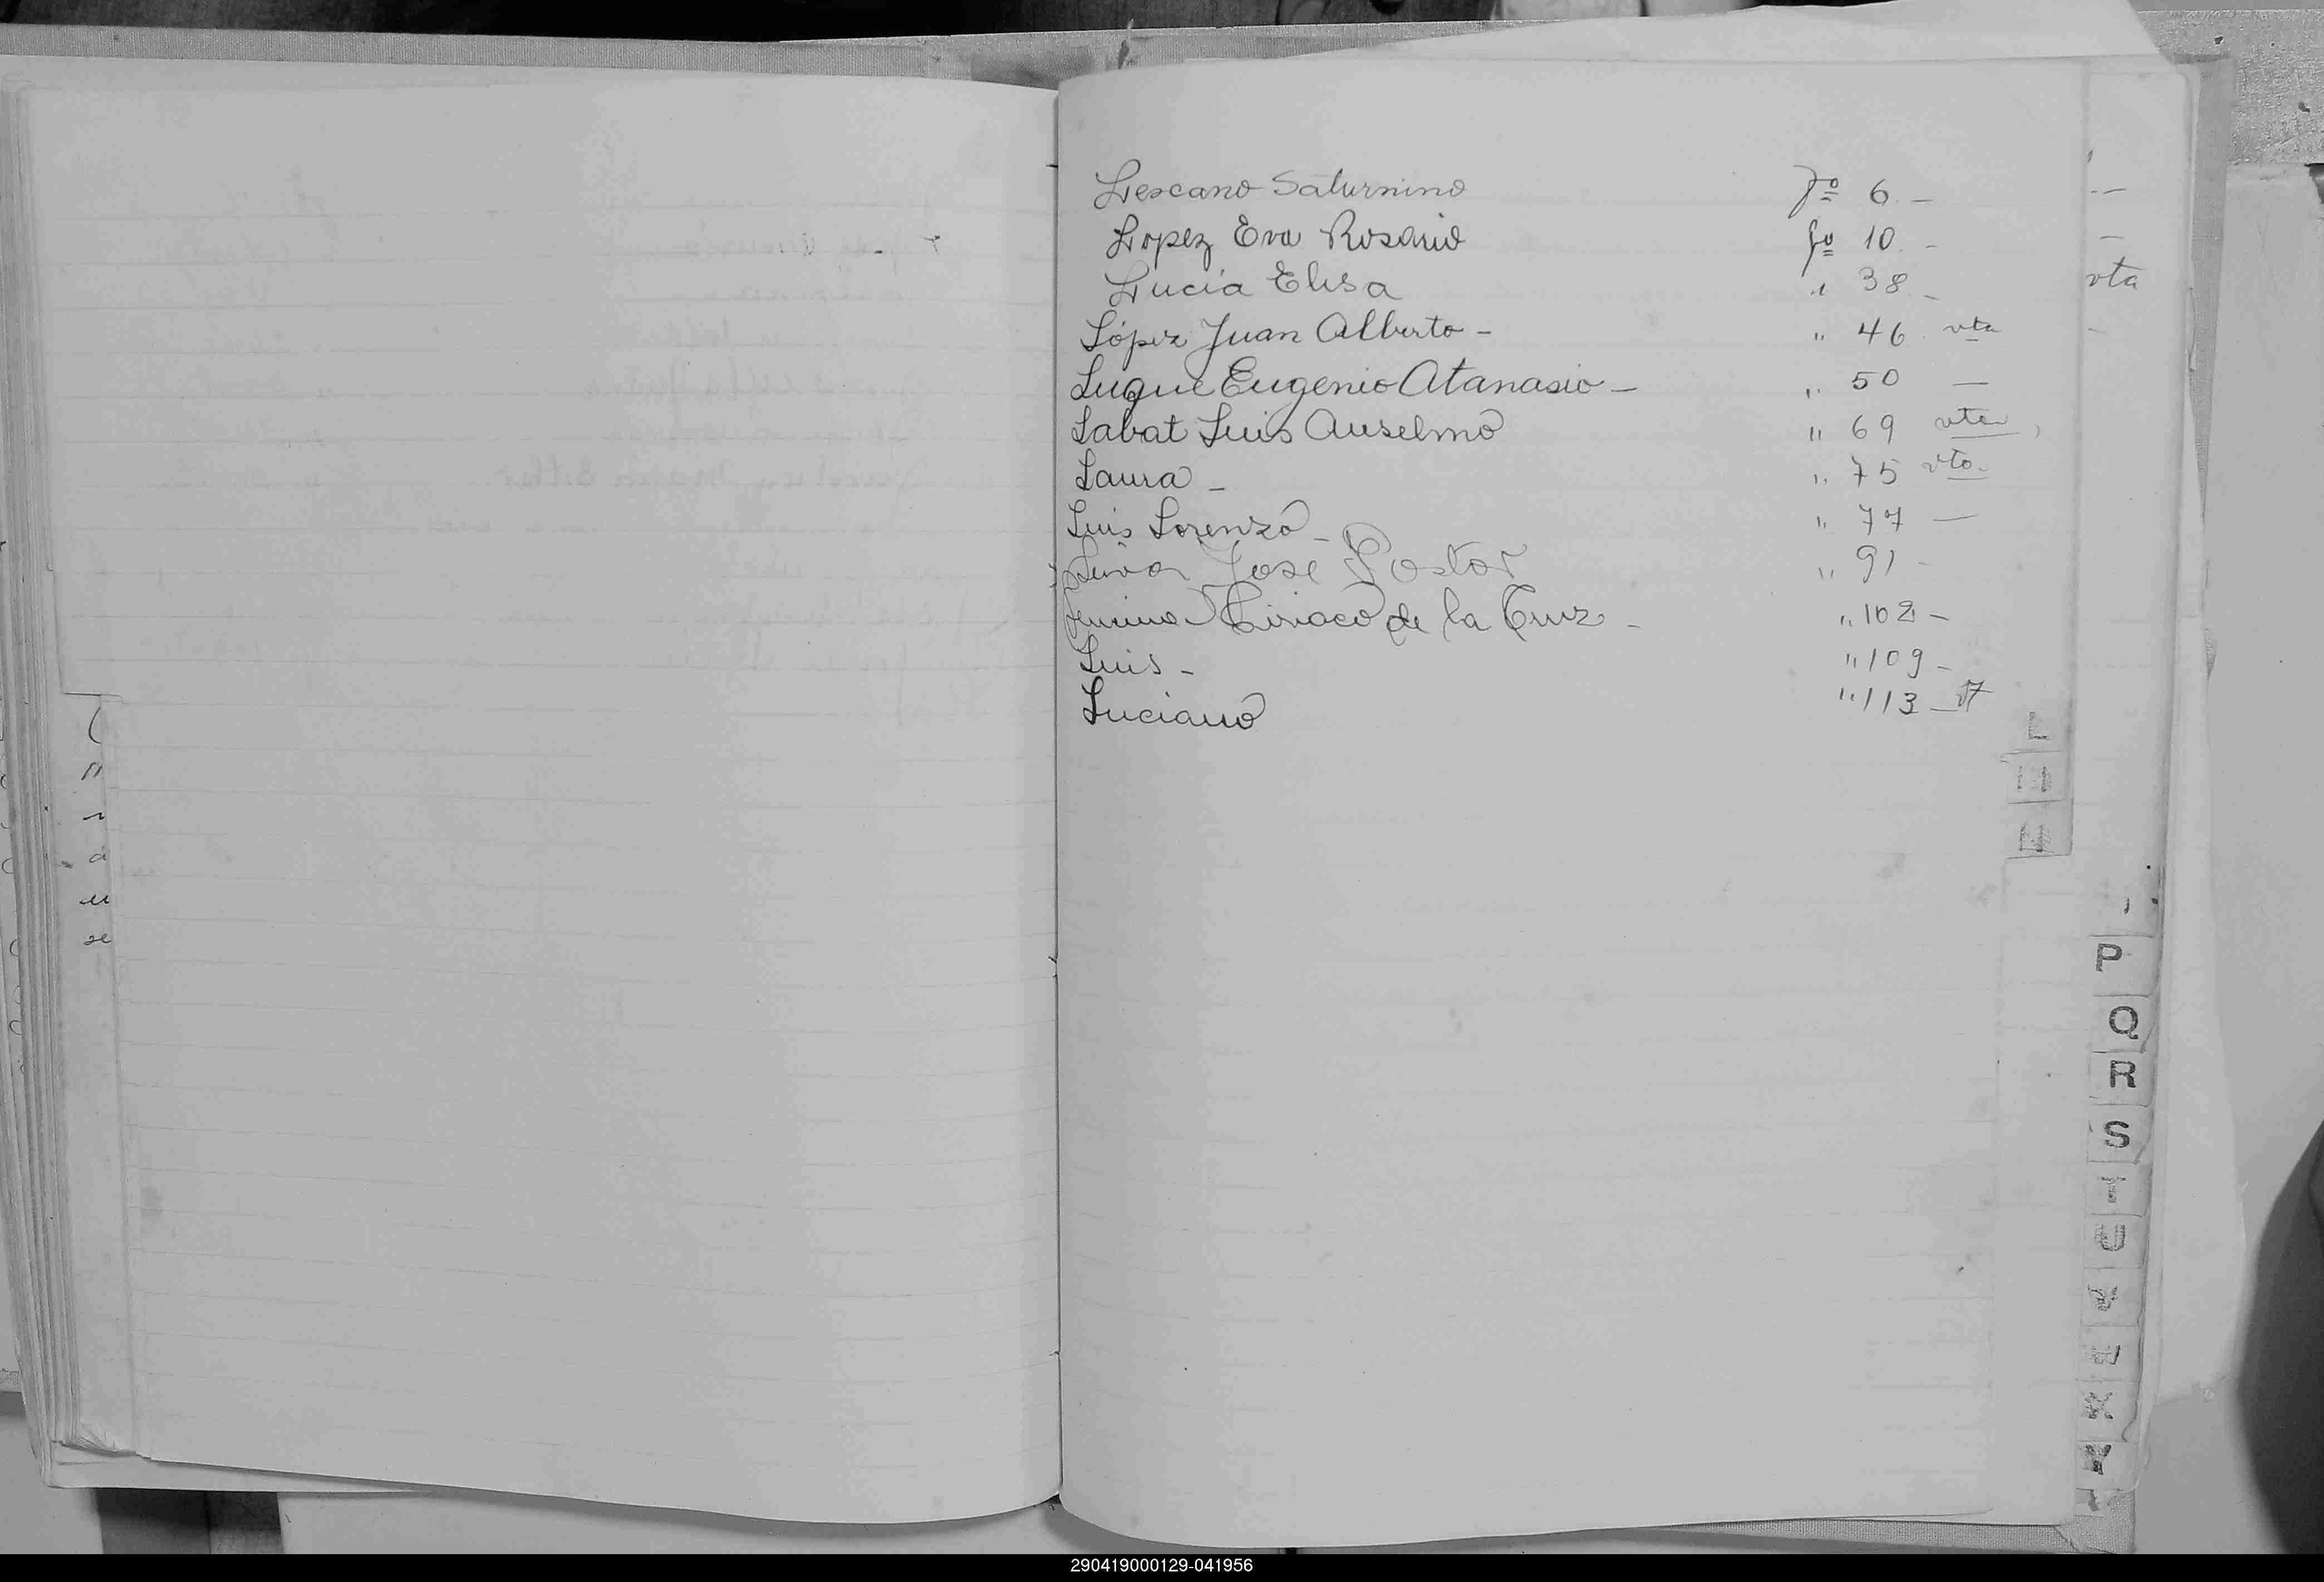 Lescano Saturnino Fº 6. -
Lopez Eva Rosario fº 10. -
Lucia Elisa " 38. - vta
López Juan Alberto - " 46 vta
Luque Eugenio Atanasio - " 50 —
Labat Luis Anselmo " 69 vta
Laura - " 75 vto.
Luis Lorenzo - " 77 —
José Pastor " 91 -
Ciriaco de la Cruz - " 102 -
Luis - " 109 -
Luciano " 113 - vt
L
M
N
P
Q
R
S
T
U
V
W
X
Y
290419000129-041956